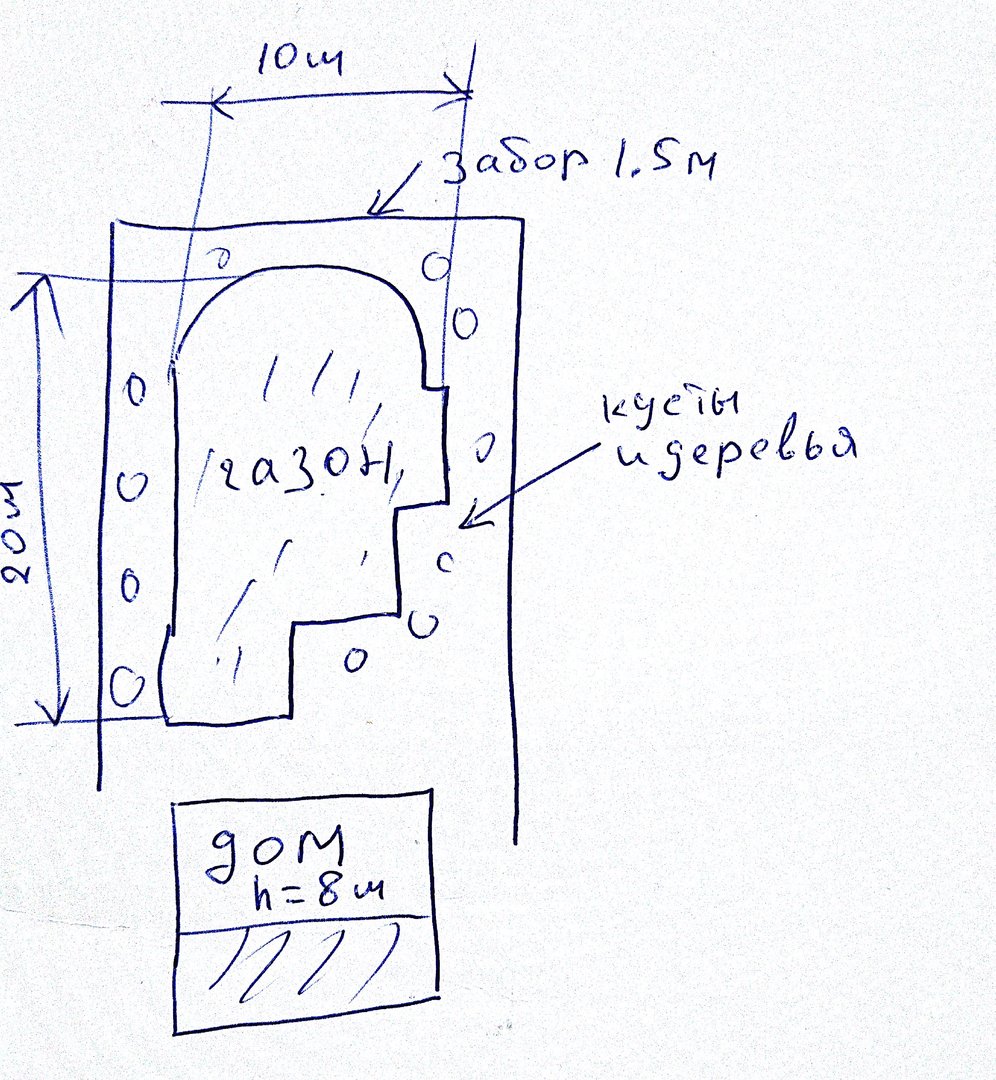 10м
забор 1.5м
кусты
и деревья
газон
20м
дом
h=8м